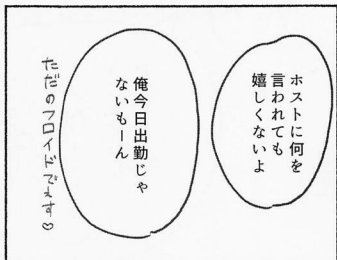 ホストに何を
言われても
嬉しくないよ
俺今日出勤じゃ
ないもーん
ただのフロイドでぇす♡